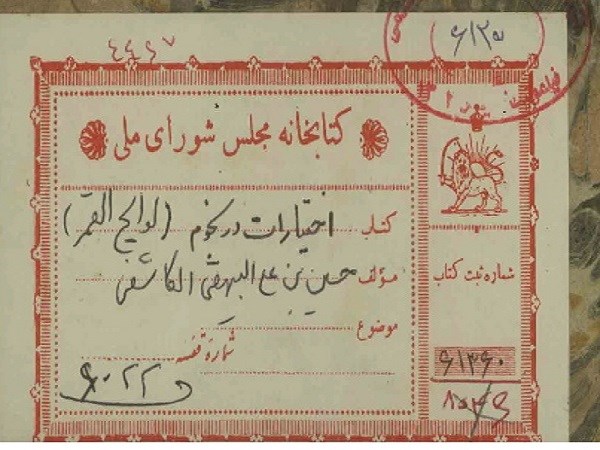 ۶۱۲۵
کتابخانه مجلس شورای ملی
کتاب اختیارات در نجوم (لوایح القمر)
مؤلف حسین بن علی البیهقی الکاشفی
موضوع
شماره قفسه
۶۰۲۲
شماره ثبت کتاب
۶۱۳۶۰